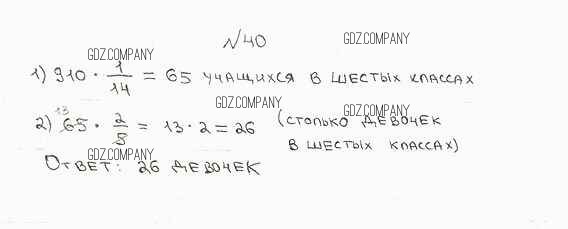 №40
GDZ.COMPANY
GDZ.COMPANY
1) 910 · 1/14 = 65 учащихся в шестых классах
GDZ.COMPANY
GDZ.COMPANY
13
2) 65 · 2/5 = 13 · 2 = 26 (столько девочек
в шестых классах)
GDZ.COMPANY
Ответ: 26 девочек